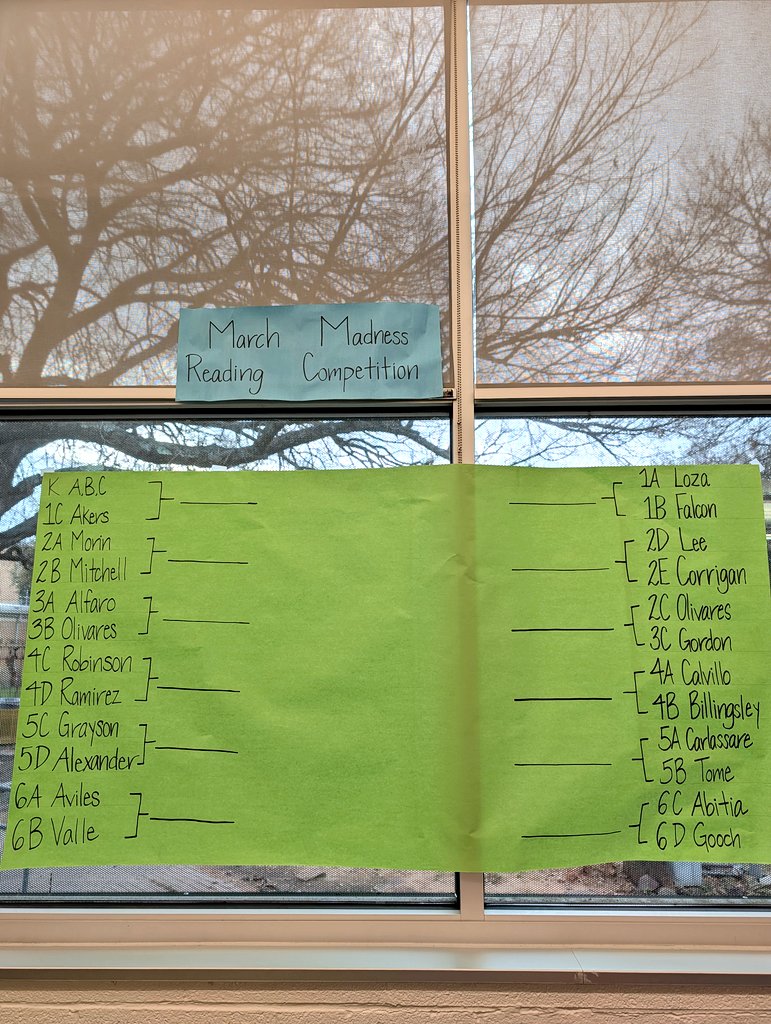 March Madness
Reading Competition
K A,B,C
1C Akers
2A Morin
2B Mitchell
3A Alfaro
3B Olivares
4C Robinson
4D Ramirez
5C Grayson
5D Alexander
6A Aviles
6B Valle
1A Loza
1B Falcon
2D Lee
2E Corrigan
2C Olivares
3C Gordon
4A Calvillo
4B Billingsley
5A Carlassare
5B Tome
6C Abitia
6D Gooch